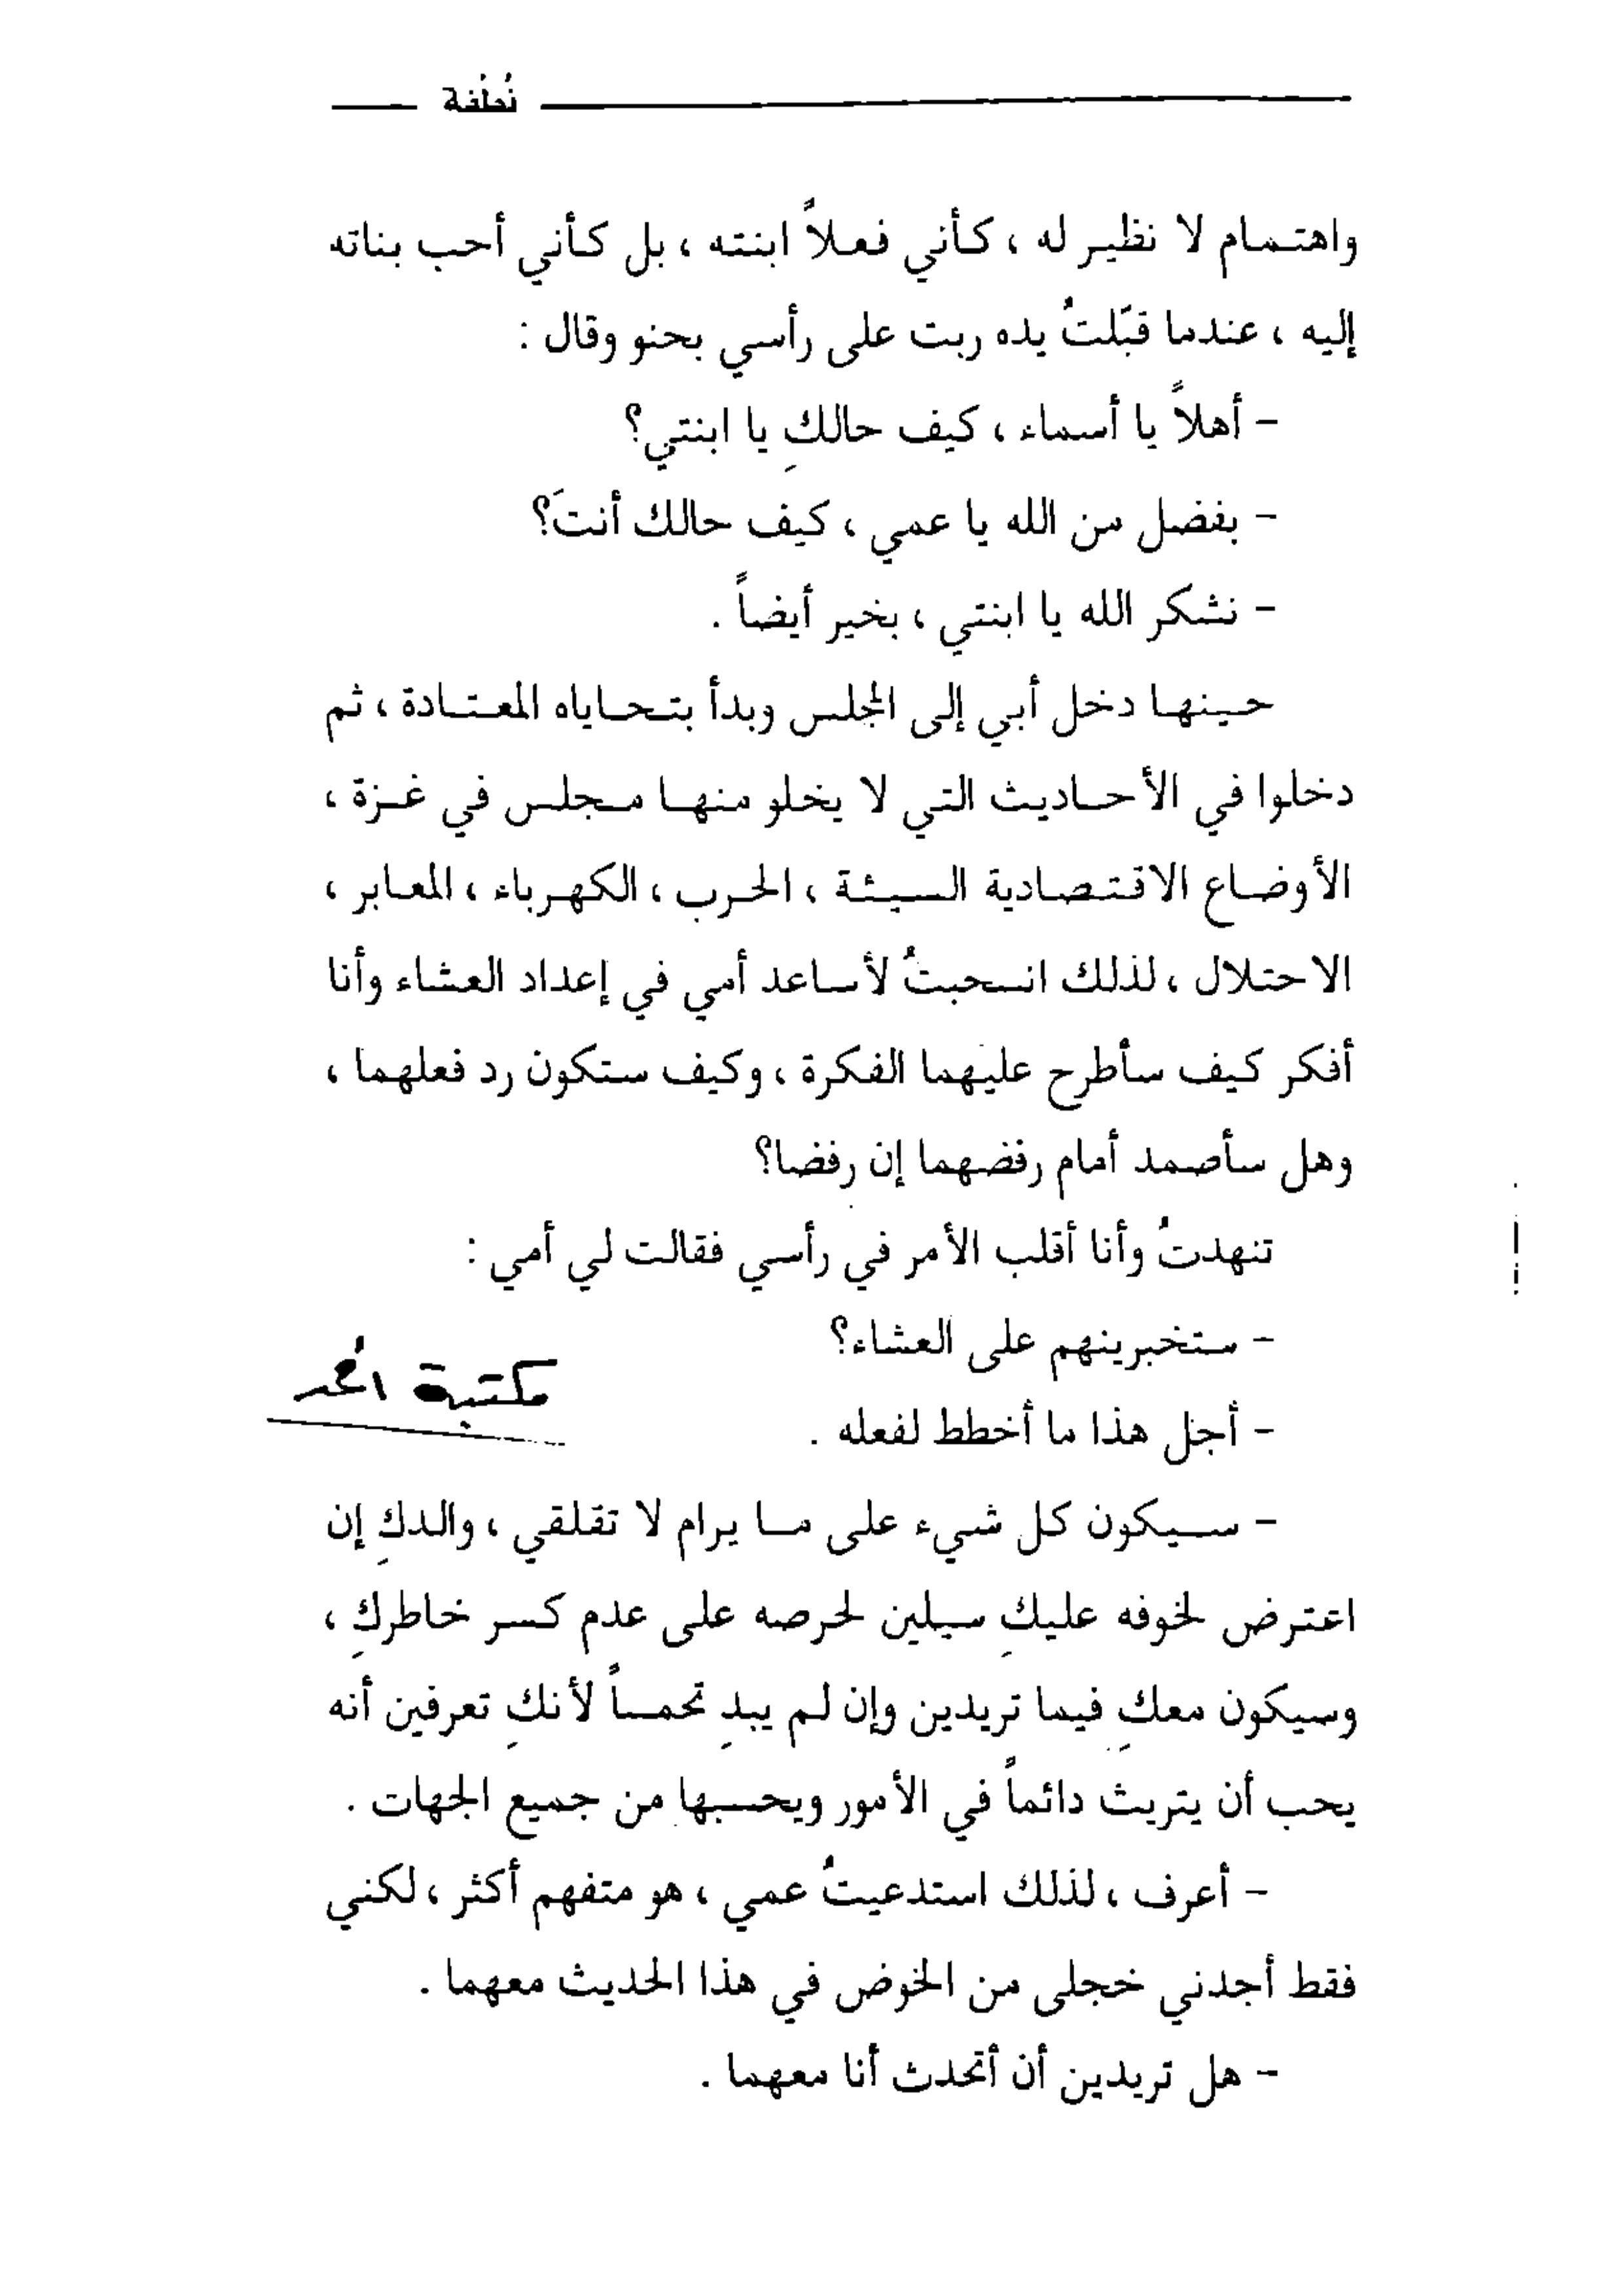 نُطفة
واهتمام لا نظير له ، كأني فعلاً ابنته ، بل كأني أحب بناته
إليه ، عندما قبّلتُ يده ربت على رأسي بحنو وقال :
- أهلاً يا أسماء ، كيف حالكِ يا ابنتي؟
- بفضل من الله يا عمي ، كيف حالك أنتَ؟
- نشكر الله يا ابنتي ، بخير أيضاً .
حينها دخل أبي إلى المجلس وبدأ بتحاياه المعتادة ، ثم
دخلوا في الأحاديث التي لا يخلو منها مجلس في غزة ،
الأوضاع الاقتصادية السيئة ، الحرب ، الكهرباء ، المعابر ،
الاحتلال ، لذلك انسحبتُ لأساعد أمي في إعداد العشاء وأنا
أفكر كيف سأطرح عليهما الفكرة ، وكيف ستكون رد فعلهما ،
وهل سأصمد أمام رفضهما إن رفضا؟
تنهدتُ وأنا أقلب الأمر في رأسي فقالت لي أمي :
- ستخبرينهم على العشاء؟
مكتبة
- أجل هذا ما أخطط لفعله .
- سيكون كل شيء على ما يرام لا تقلقي ، والدكِ إن
اعترض لخوفه عليكِ سيلين لحرصه على عدم كسر خاطركِ ،
وسيكون معكِ فيما تريدين وإن لم يبدِ تحمساً لأنكِ تعرفين أنه
يحب أن يتريث دائماً في الأمور ويحسبها من جميع الجهات .
- أعرف ، لذلك استدعيتُ عمي ، هو متفهم أكثر ، لكني
فقط أجدني خجلى من الخوض في هذا الحديث معهما .
- هل تريدين أن أتحدث أنا معهما .